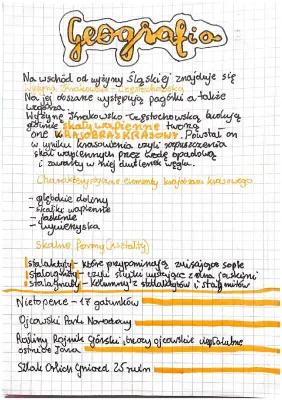 Geografia
Na wschód od wyżyny Śląskiej znajduje się
wyżyna Krakowsko - Częstochowska
Na jej obszarze występują pagórki a także
wzgórza.
Wyżynę Krakowsko-Częstochowską budują
głównie skały wapienne tworzą
one KRAJOBRAZ KRASOWY. Powstał on
w wyniku krasowienia czyli rozpuszczenia
skał wapiennych przez wodę opadową
i zawarty w niej dwutlenek węgla.
Charakterystyczne elementy krajobrazu krasowego
- głębokie doliny
- skałki wapienne
- jaskinie
- wywierzyska
Skalne formy (kształty)
stalaktyty - które przypominają zwisające sople
czyli słupki wystające z dna jaskini
stalagnaty - kolumny z stalaktytów i stalagmitów
Nietoperze - 17 gatunków
Ojcowski Park Narodowy
Rośliny Rojnik Górski, brzozy ojcowskie
Szlak Orlich Gniazd 25 ruin